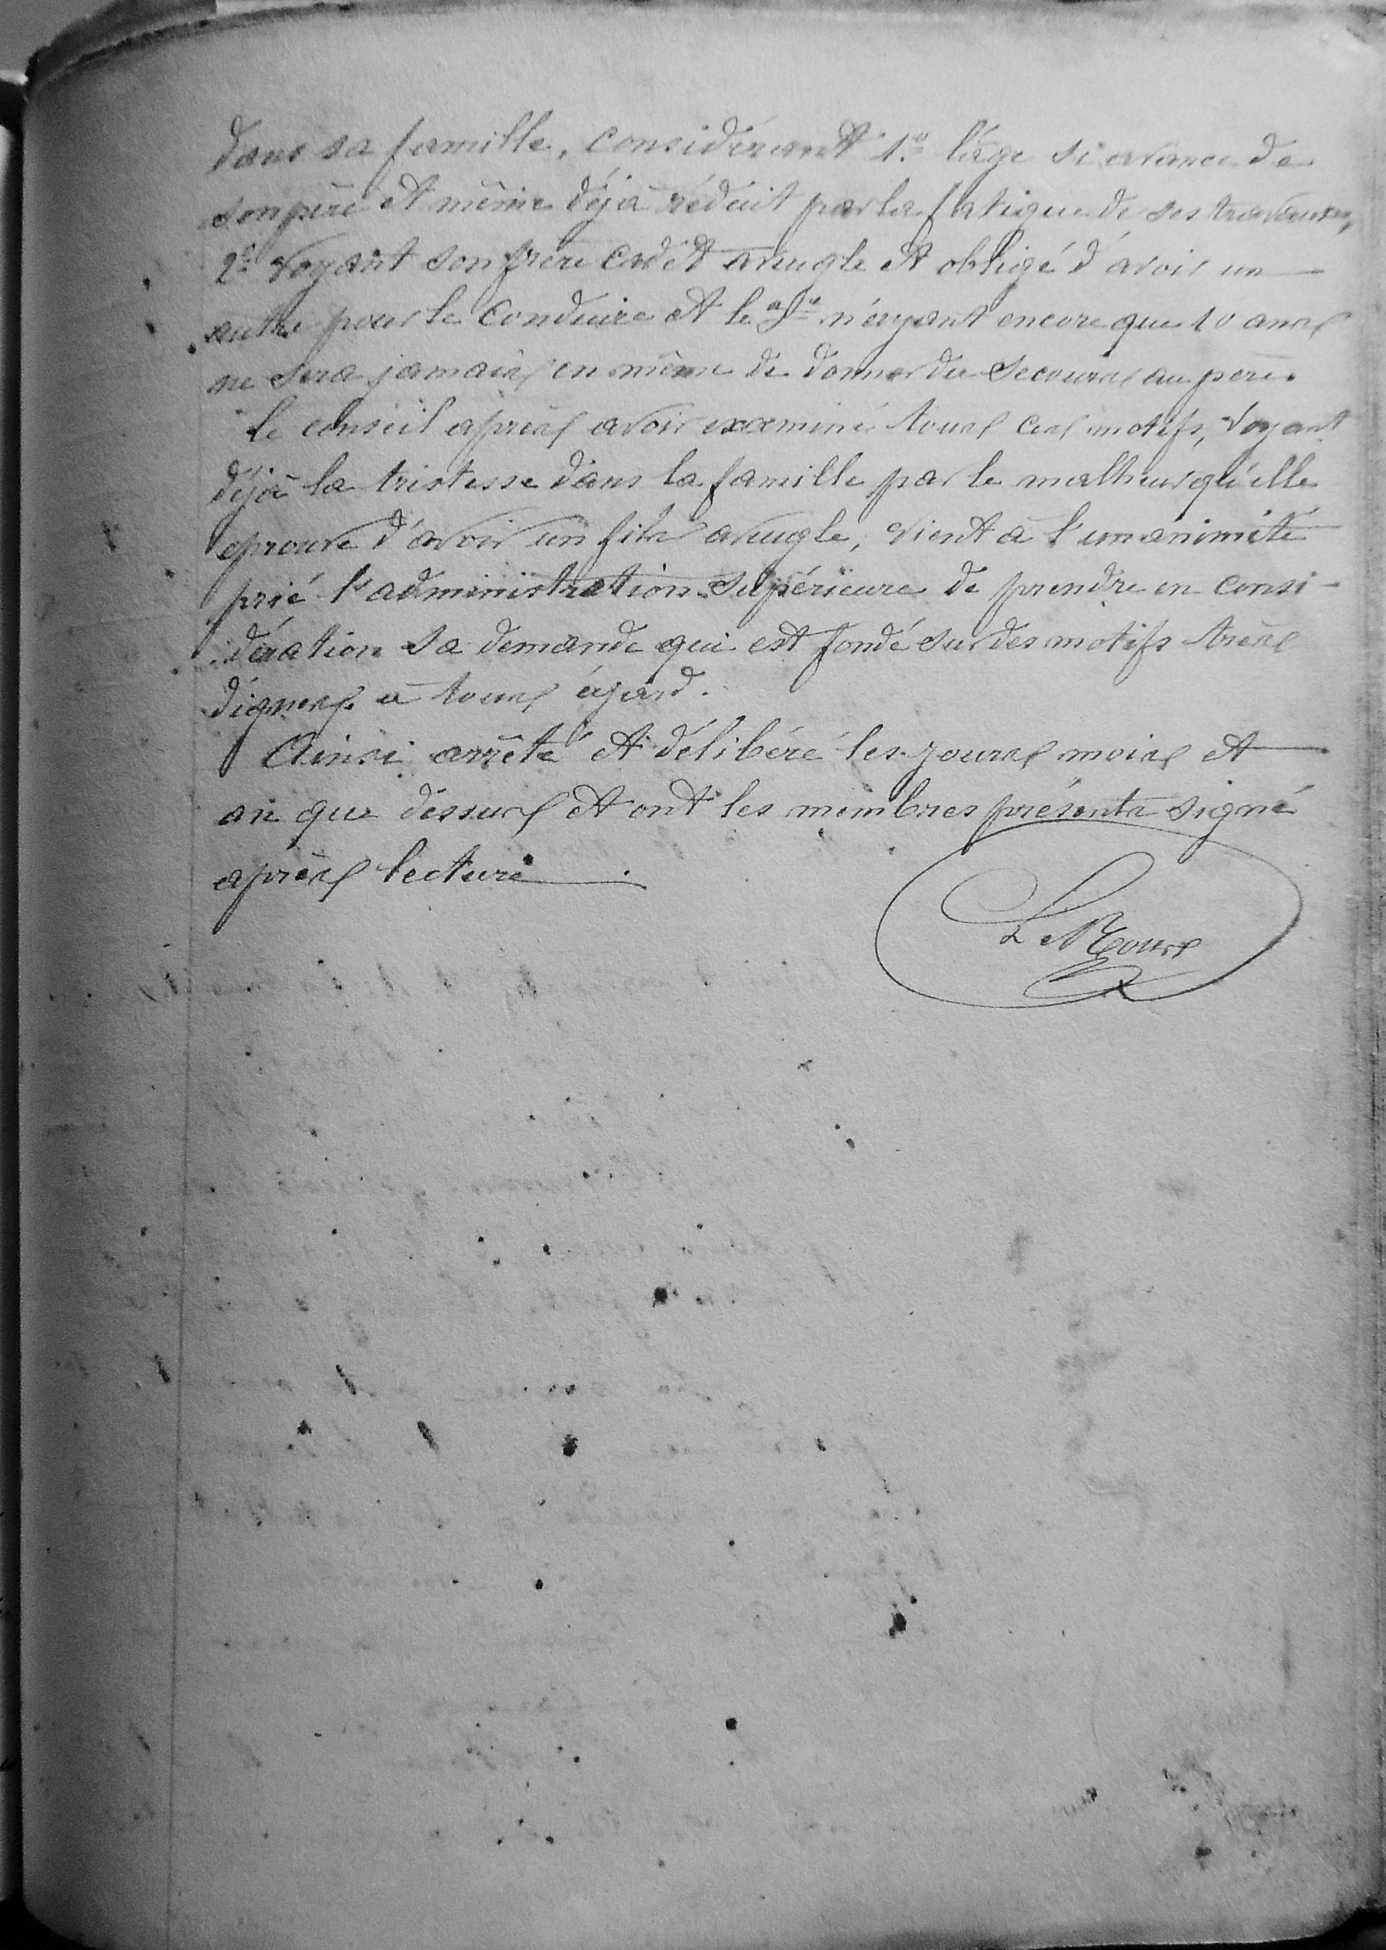 dans sa famille, considérant 1.° l'âge si avancé de
son père et même déjà réduit par la fatigue de ses travaux,
2° voyant son frère cadet aveugle et obligé d'avoir un
autre pour le conduire et le 3e n'ayant encore que 10 ans
ne sera jamais en même de donner du secours au père.
le conseil après avoir examiné tous ces motifs, voyant
déjà la tristesse dans la famille par le malheur qu'elle
eprouve d'avoir un fils aveugle, vient à l'unanimité
prié l'administration supérieure de prendre en consi-
dération sa demande qui est fondé sur des motifs très
dignes à tous égard.
Ainsi arrêté et délibéré les jours mois et
an que dessus et ont les membres présents signé
après lecture.
Le Roux